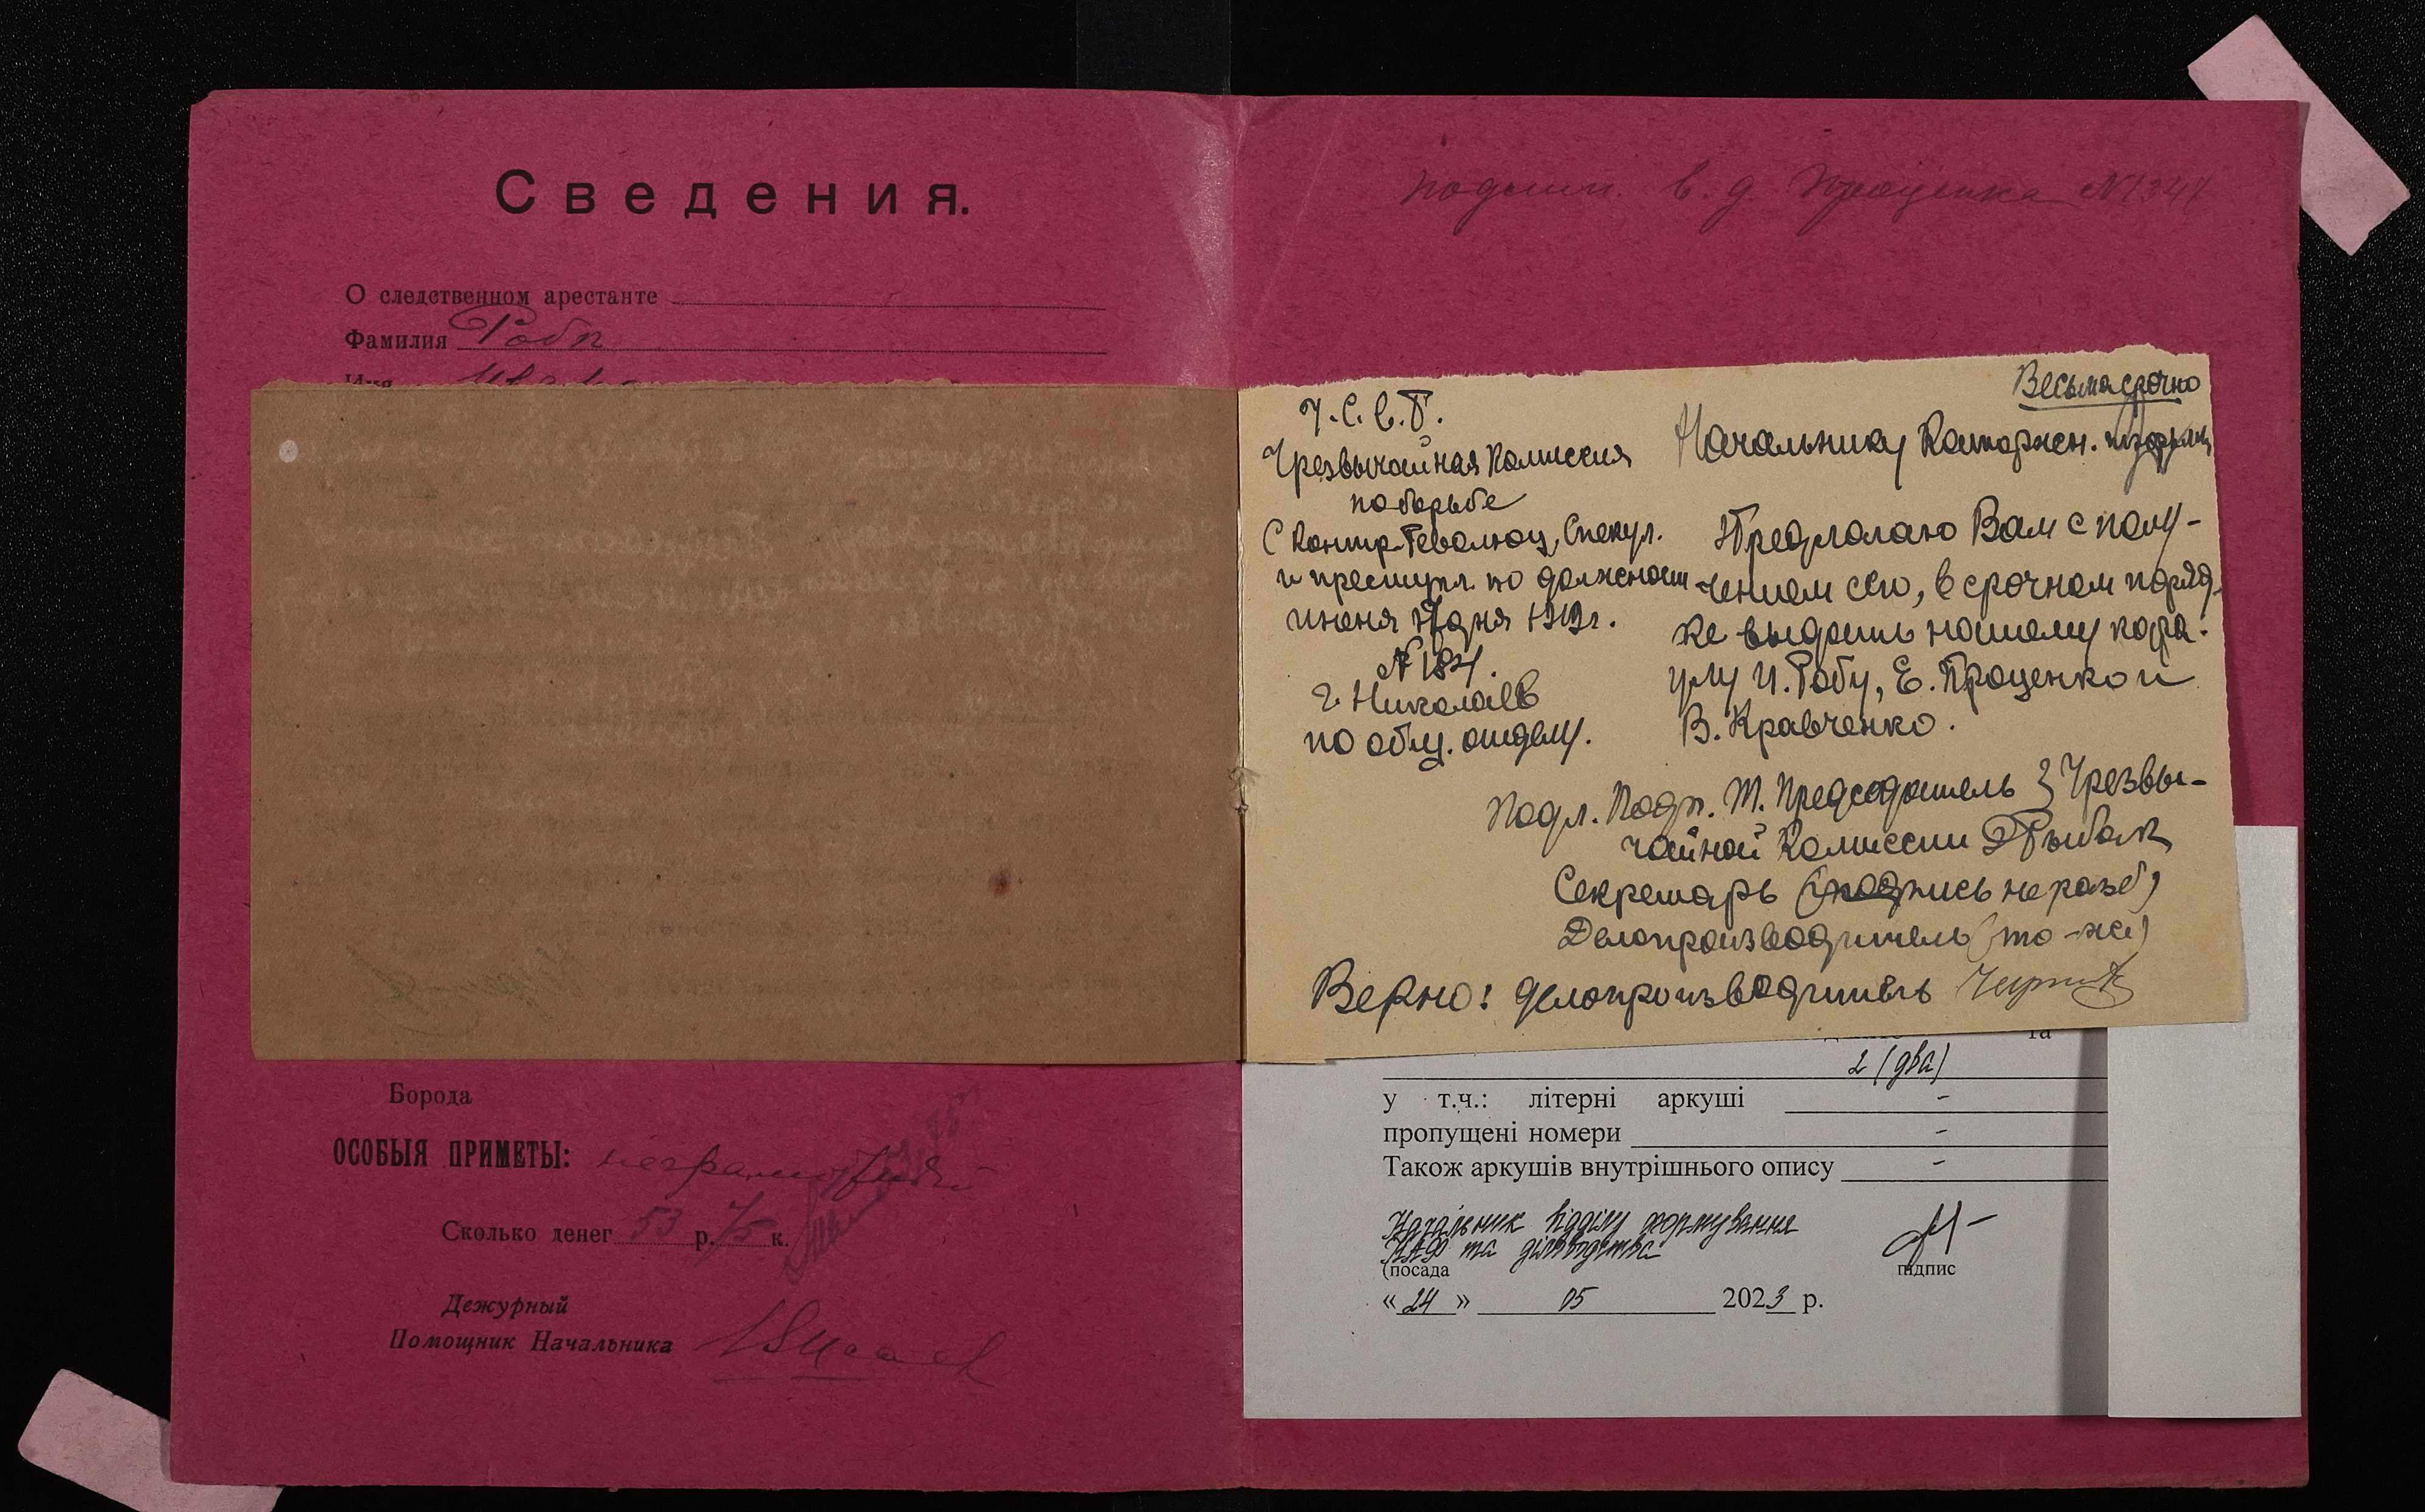 Сведения.
О следственном арестанте
Фамилия Робу
Имя
Борода
ОСОБЫЯ ПРИМЕТЫ: неграмотный
Сколько денег 53 р. 75 к.
Дежурный
Помощник Начальника
в. д. Проценка №1347
Весьма срочно
У.С.С.Р.
Чрезвычайная Комиссия
по борьбе
с Контр-Революц, Спекул.
и преступл. по должности
июня 17 дня 1919г.
№ 184.
г. Николаев
по общ. отделу.
Начальнику Каторжн. тюрьмы
Предлагаю Вам с полу-
чением сего, в срочном поряд-
ке выдать нашему кара-
улу И. Робу, Е. Проценко и
В. Кравченко.
Подл. Подп. Т. Председатель Чрезвы-
чайной Комиссии Рыбак
Секретарь (подпись не разб)
Делопроизводитель (то-же)
Верно: делопроизводитель
та
2 (два)
у т.ч.: літерні аркуші -
пропущені номери -
Також аркушів внутрішнього опису -
Начальник відділу формування
НАФ та діловодства
(посада
підпис
« 24 » 05 2023 р.